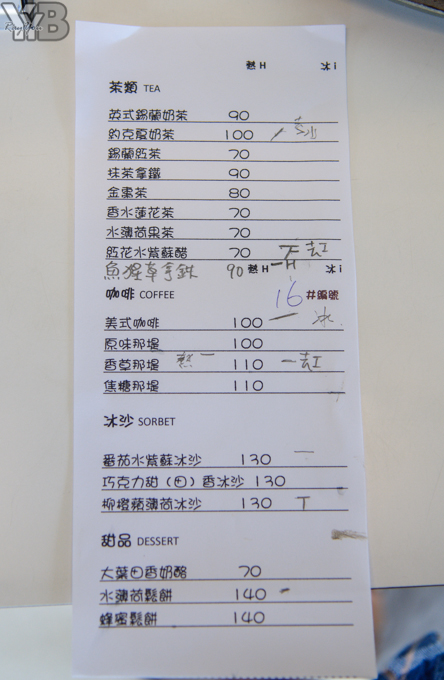 YWB
熱H 冰i
茶類 TEA
英式錫蘭奶茶 90
約克夏奶茶 100
錫蘭紅茶 70
抹茶拿鐵 90
金棗茶 80
香水蓮花茶 70
水薄荷果茶 70
紅花水紫蘇醋 70
魚腥草拿鉄 90 熱H 冰i
咖啡 COFFEE 16 #編號
美式咖啡 100 冰
原味那堤 100
香草那堤 110
焦糖那堤 110
冰沙 SORBET
番茄水紫蘇冰沙 130
巧克力甜(回)香冰沙 130
柳橙蘋薄荷冰沙 130
甜品 DESSERT
大葉回香奶酪 70
水薄荷鬆餅 140
蜂蜜鬆餅 140